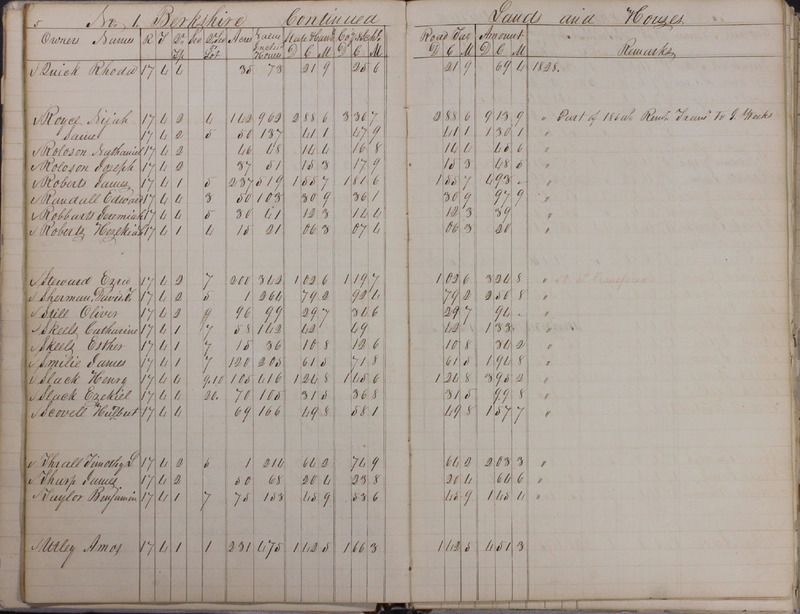 5 No. 1. Berkshire Continued Land and Houses
Owners Names R T Qr Tp Sec Lot Acres Value Includ Houses State & Canal D C M Co & School D C M Road Tax D C M Amount D C M Remarks
Quick Rhoda 17 4 4 35 73 21 9 25 6 21 9 69 4 1828.
Royce Bijah 17 4 2 4 142 962 2 88 6 3 36 7 2 88 6 9 13 9 " Part of
Same 17 4 2 5 50 137 41 1 47 9 41 1 1 30 1 "
Roloson Nathaniel 17 4 2 46 48 14 4 16 8 14 4 45 6 "
Roloson Joseph 17 4 2 37 51 15 3 17 9 15 3 48 5 "
Roberts James 17 4 1 5 237 519 1 55 7 1 81 6 1 55 7 4 93 - "
Randall Edward 17 4 4 3 50 103 30 9 36 1 30 9 97 9 "
Robbarts Jeremiah 17 4 4 5 30 41 12 3 14 4 12 3 39 "
Roberts Hezekiah 17 4 1 4 15 21 06 3 07 4 06 3 20 "
Steward Ezra 17 4 2 7 200 342 1 02 6 1 19 7 1 02 6 3 24 8 "
Sherman David 17 4 2 5 1 264 79 2 92 4 79 2 2 50 8 "
Still Oliver 17 4 2 9 96 99 29 7 34 6 29 7 94 - "
Skeels Catharine 17 4 1 7 58 142 42 49 42 1 33 "
Skeels Esther 17 4 1 7 15 36 10 8 12 6 10 8 34 2 "
Smilie James 17 4 1 7 120 205 61 5 71 8 61 5 1 94 8 "
Slack Henry 17 4 4 9.10 105 416 1 24 8 1 45 6 1 24 8 3 95 2 "
Slack Ezekiel 17 4 4 20. 70 105 31 5 36 8 31 5 99 8 "
Scovell Hulbut 17 4 4 69 166 49 8 58 1 49 8 1 57 7 "
Thrall Timothy L 17 4 2 5 1 214 64 2 74 9 64 2 2 03 3 "
Tharp James 17 4 2 50 68 20 4 23 8 20 4 64 6 "
Taylor Benjamin 17 4 1 7 75 153 45 9 53 6 45 9 1 45 4 "
Utley Amos 17 4 1 1 231 475 1 42 5 1 66 3 1 42 5 4 51 3